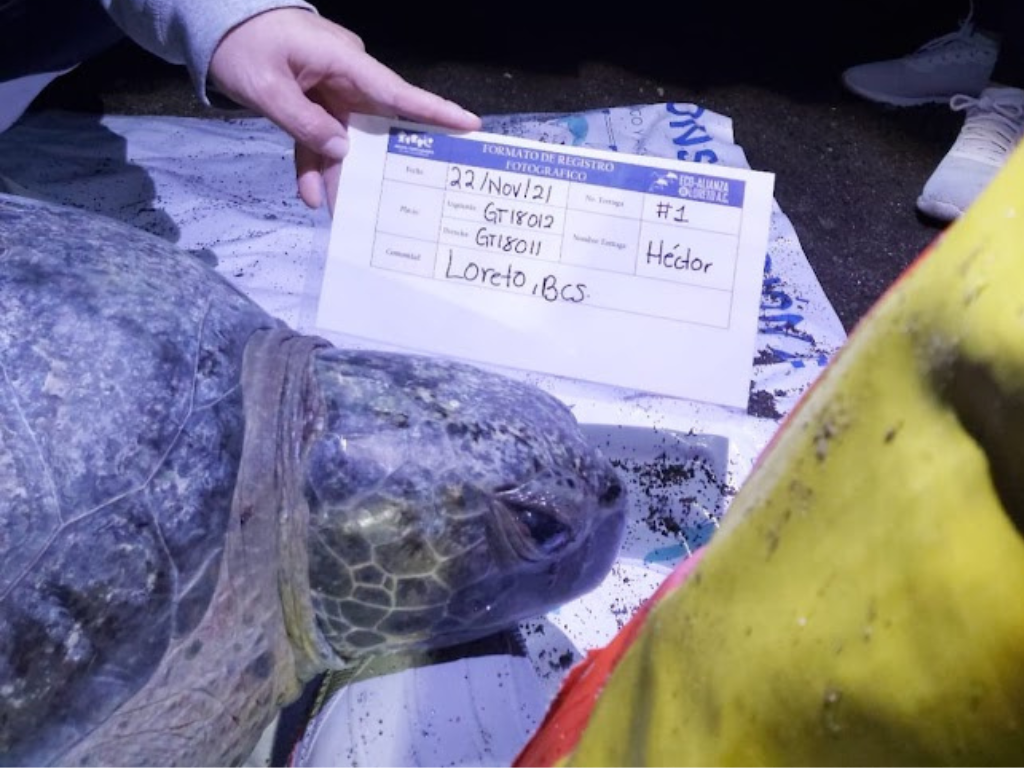 FORMATO DE REGISTRO
FOTOGRAFICO
ECO-ALIANZA
LORETO, A.C.
Fecha 22/Nov/21 No. Tortuga #1
Placas Izquierda GT18012 Nombre Tortuga Héctor
Derecha GT18011
Comunidad Loreto, BCS.
ONS